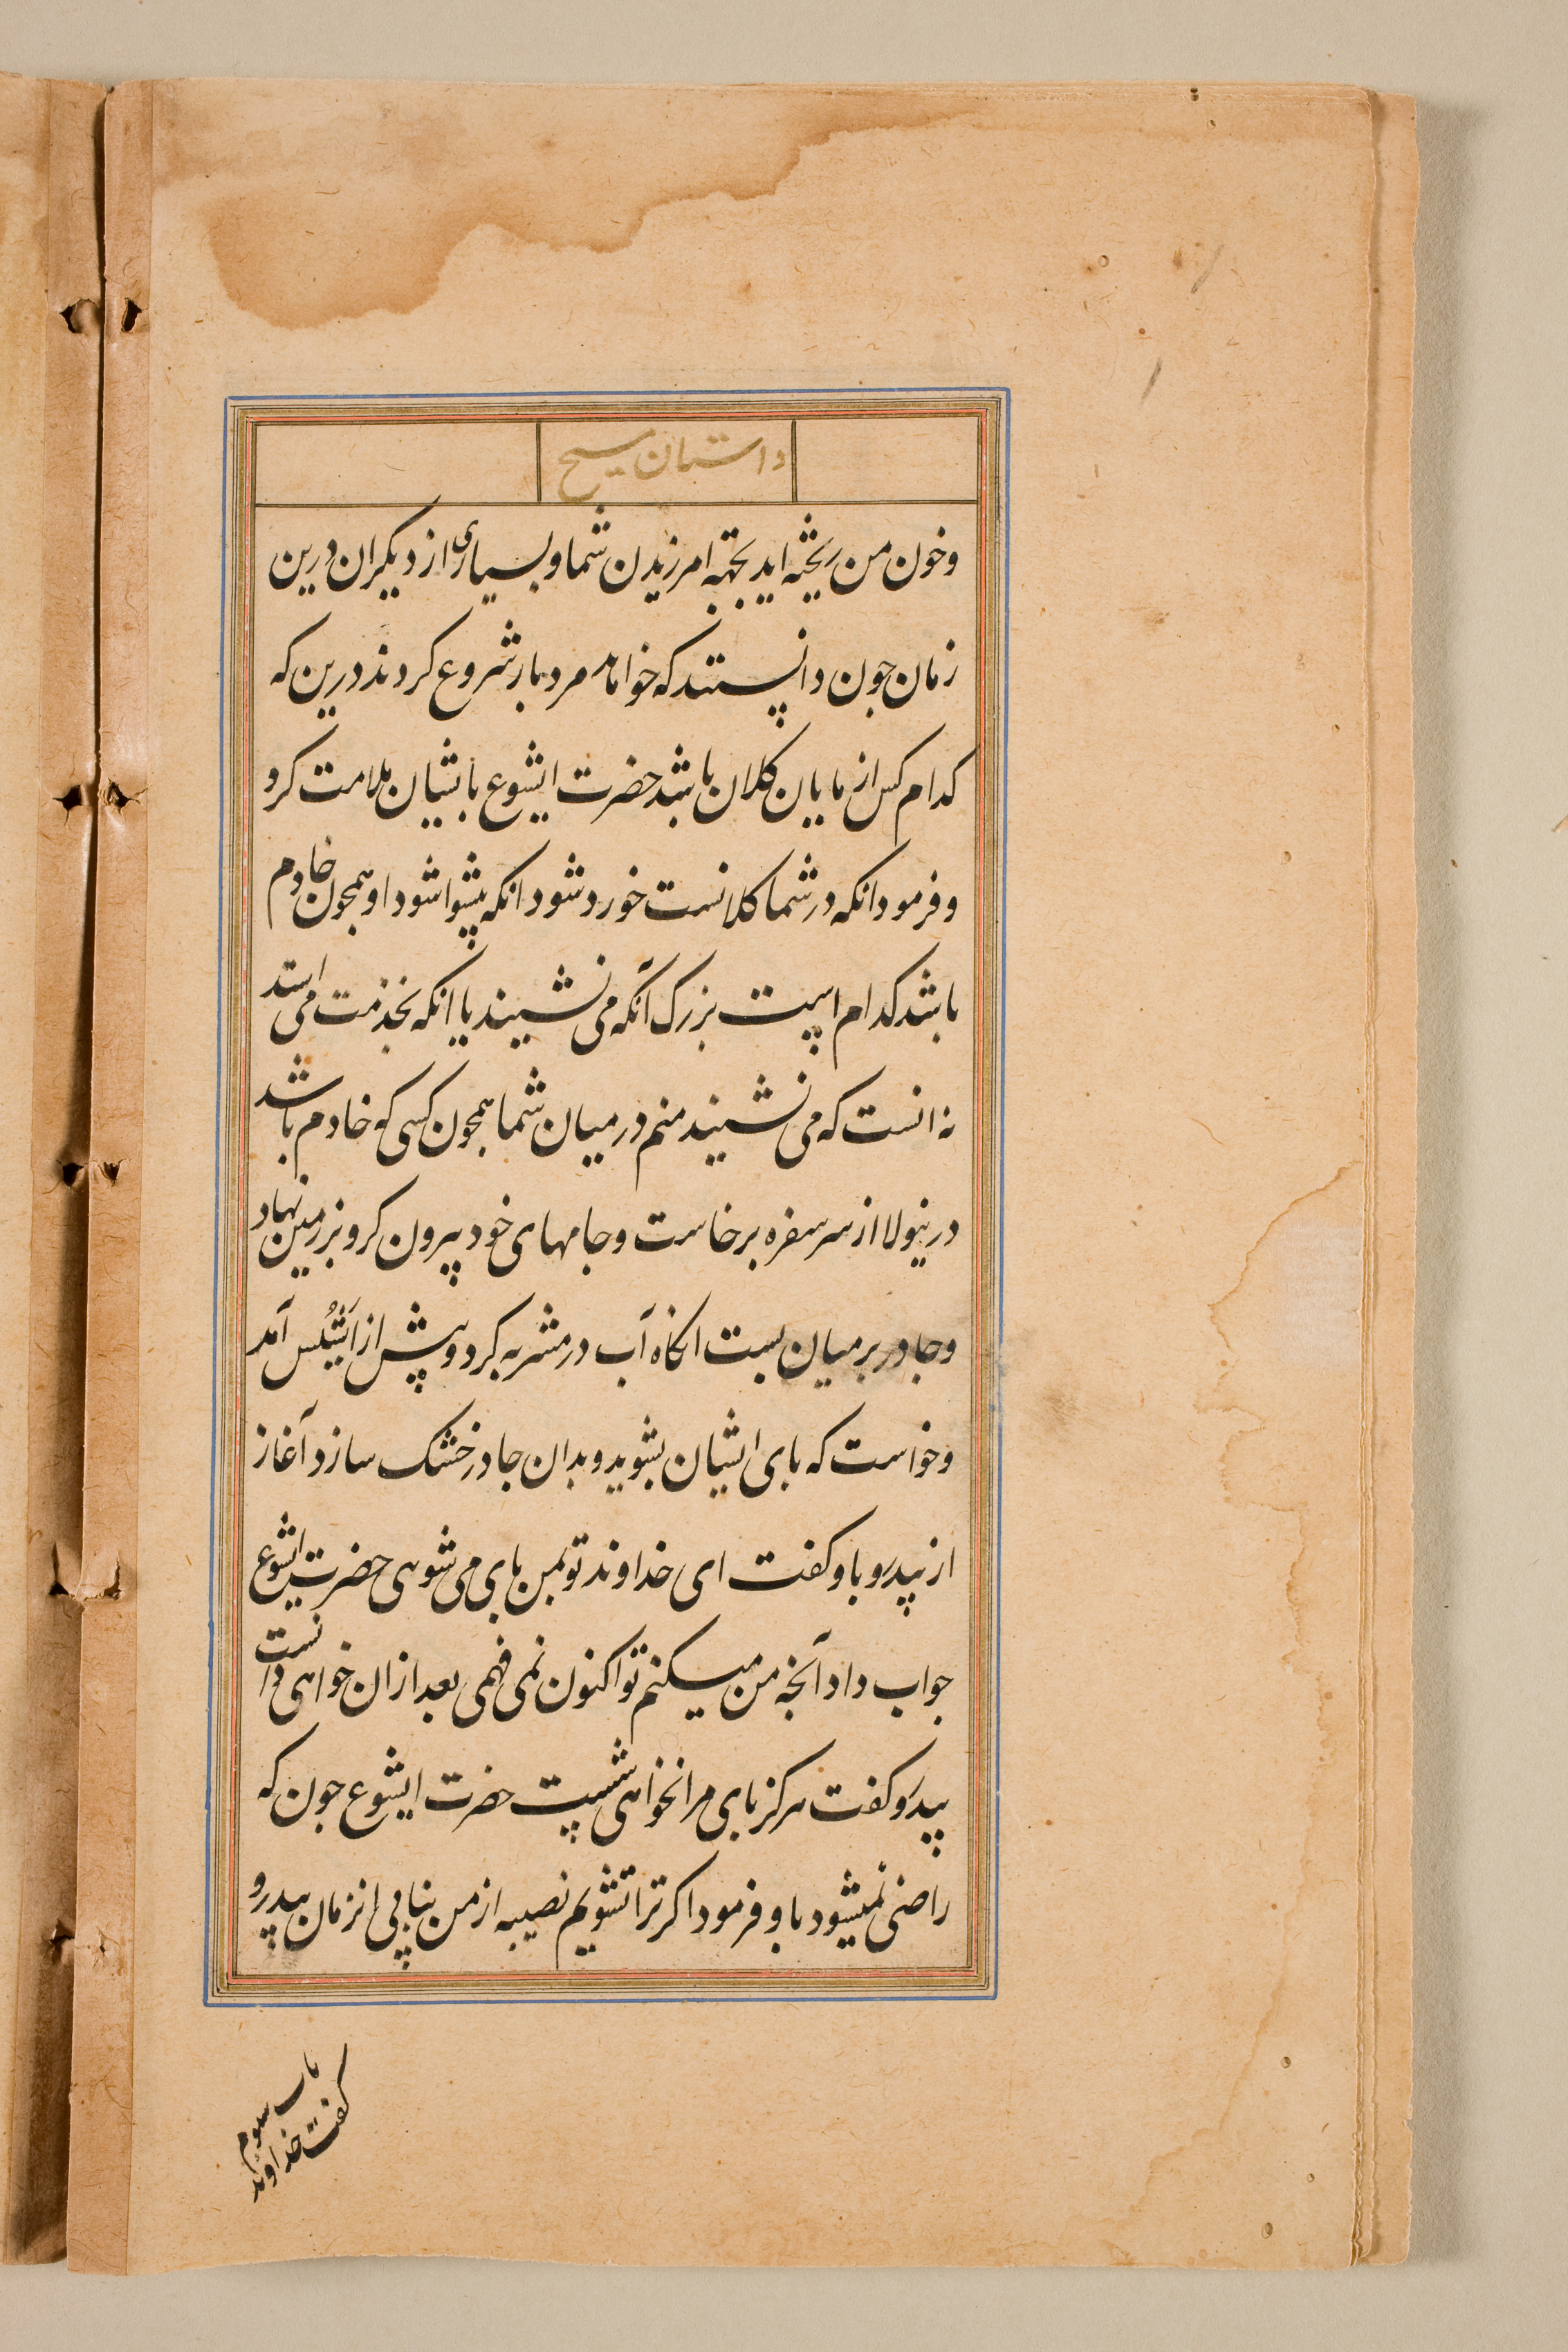 داستان مسیح
وخون من ریخته اید بجهته امرزیدن شما وبسیاری از دیکران درین
زمان جون دانستند که خواهد مرد بار شروع کردند درین که
کدام کس از مایان کلان باشد حضرت ایشوع باشیان ملامت کرد
وفرمود انکه در شما کلانست خورد شود انکه پیشوا شود او همجون خادم
باشد کدام است بزرک آنکه می نشیند یا انکه بخدمت می استد
نه انست که می نشیند منم در میان شما همجون کسی که خادم باشد
درینولا از سر سفره برخاست وجامهای خود بیرون کرد وبر زمین نهاد
وجادر بر میان بست انکاه آب در مشربه کرد وپیش از آتیکس آمد
وخواست که بای ایشان بشوید وبدان جادر خشک سازد آغاز
از پیدرو باو کفت ای خداوند تو بمن بای می شوهی حضرت ایشوع
جواب داد آنجه من میکنم تو اکنون نمی فهمی بعد از ان خواهی دانست
پیدرو کفت هرکز بای مرا نخواهی شست حضرت ایشوع جون که
راضی نمیشود باو فرمود اکر ترا نشویم نصیبه از من نیابی انزمان پیدرو
باب سوم
کفت خداوند